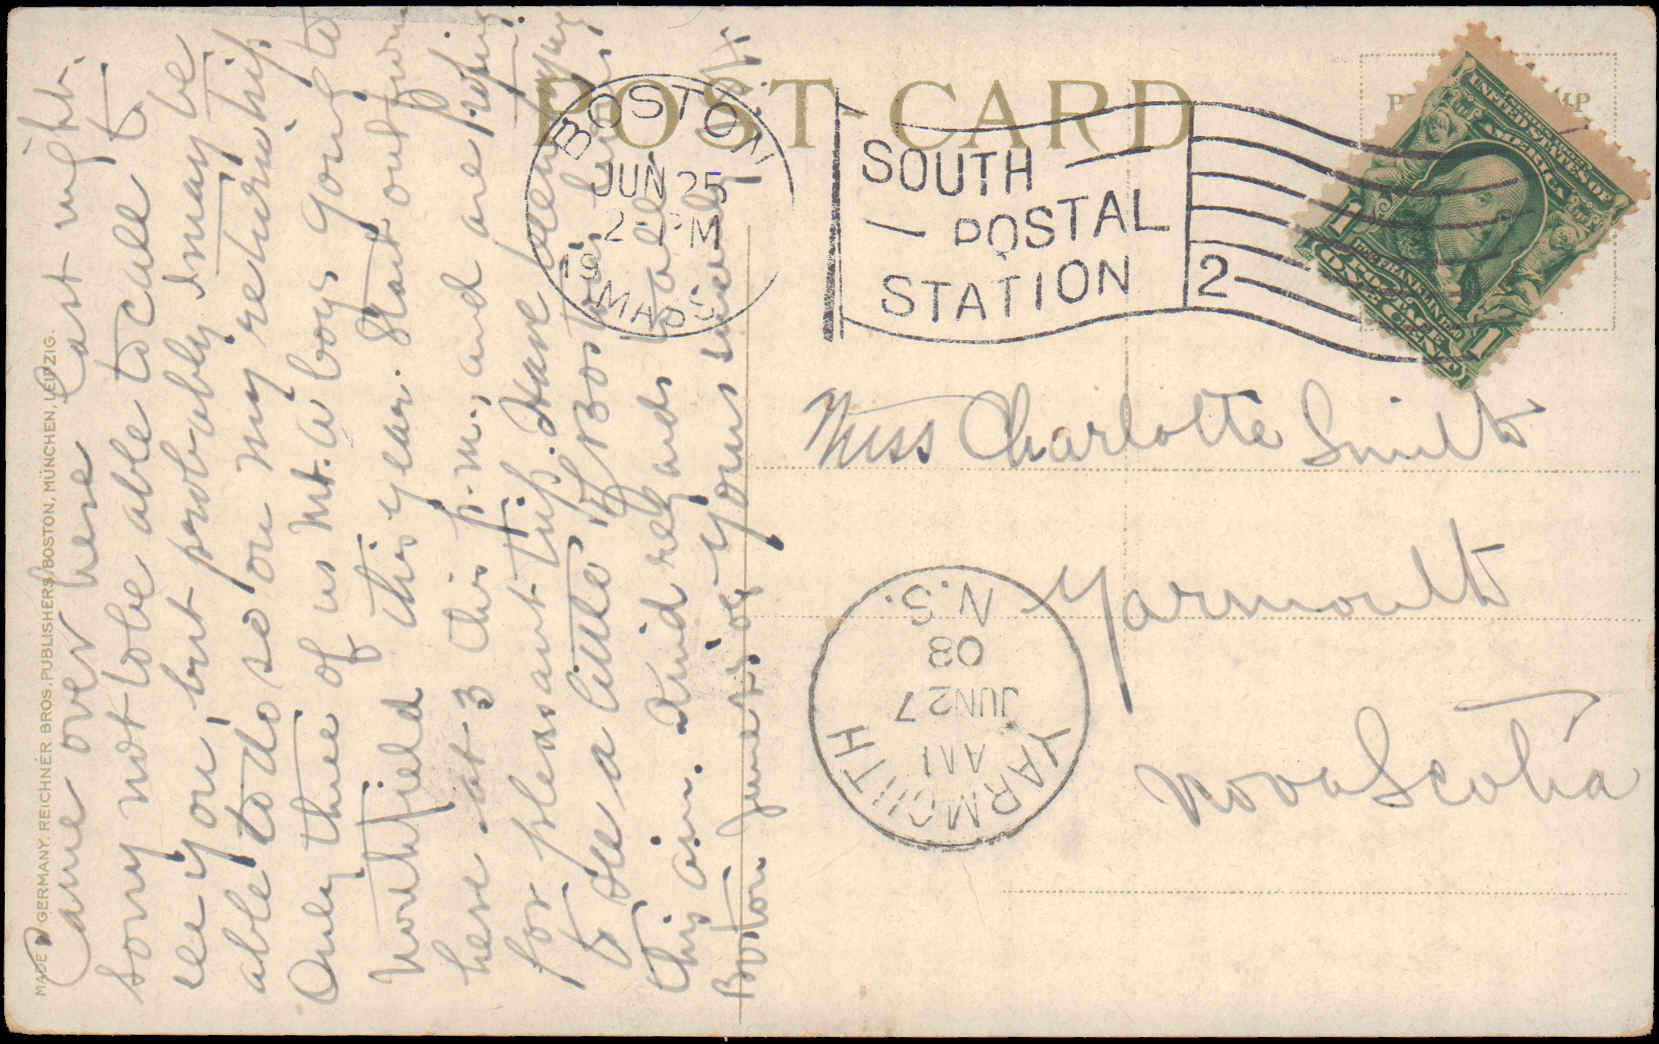 POST-CARD
BOSTON
JUN 25
2 PM
19
MASS
SOUTH
POSTAL
STATION
2
UNITED STATES OF
AMERICA
FRANKLIN
POSTAGE
ONE CENT
1 1
Miss Charlotte Smith
Yarmouth
Nova Scotia
YARMOUTH
AM
JUN 27
08
N.S.
MADE IN GERMANY. REICHNER BROS. PUBLISHERS, BOSTON, MÜNCHEN, LEIPZIG.
Came over here last night.
Sorry not to be able to call to
see you, but probably I may be
able to do so on my return trip.
Only three of us Mt. A boys going to
Northfield this year. Start out from
here at 3 this p.m., and are hoping
for pleasant trip. Have been trying
to see a little of Boston
this a.m. Kind regards to all.
Boston June 25 08 Yours sincerely